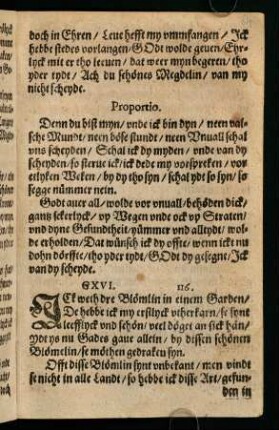 doch in Ehren / Leue hefft my vmmfangen / Jck
hebbe stedes vorlangen / GOdt wolde geuen / Ehr-
lyck mit er tho leuen / dat weer myn begeren / tho
yder tydt / Ach du schönes Megdelin / van my
nicht scheyde.
Proportio.
Denn du bist myn / vnde ick bin dyn / neen val-
sche Mundt / neen böse stundt / neen Vnuall schal
vns scheyden / Schal ick dy myden / vnde van dy
scheyden / so sterue ick / ick bede my vorspreken / vor-
erlyken Weken / by dy tho syn / schal ydt so syn / so
segge nümmer nein.
Godt auer all / wolde vor vnuall / behöden dick /
gantz sekerlyck / vp Wegen vnde ock vp Straten /
vnd dyne Gesundtheit / yümmer vnd alltydt / wol-
de erholden / Dat wünsch ick dy offte / wenn ickt nu
dohn dörffte / tho yder tydt / GOdt dy gesegnt / Jck
van dy scheyde.
CXVI. 116.
JCk weth dre Blömlin in einem Garden /
De hebbe ick my erstlyck vtherkarn / se synt
leefflyck vnd schön / veel döget an sick hän /
ydt ys nu Gades gaue allein / by dissen schönen
Blömelin / se möthen gedraken syn.
Offt disse Blömlin synt vnbekant / men vindt
se nicht in alle Landt / so hebbe ick disse Art / gefun-
den in